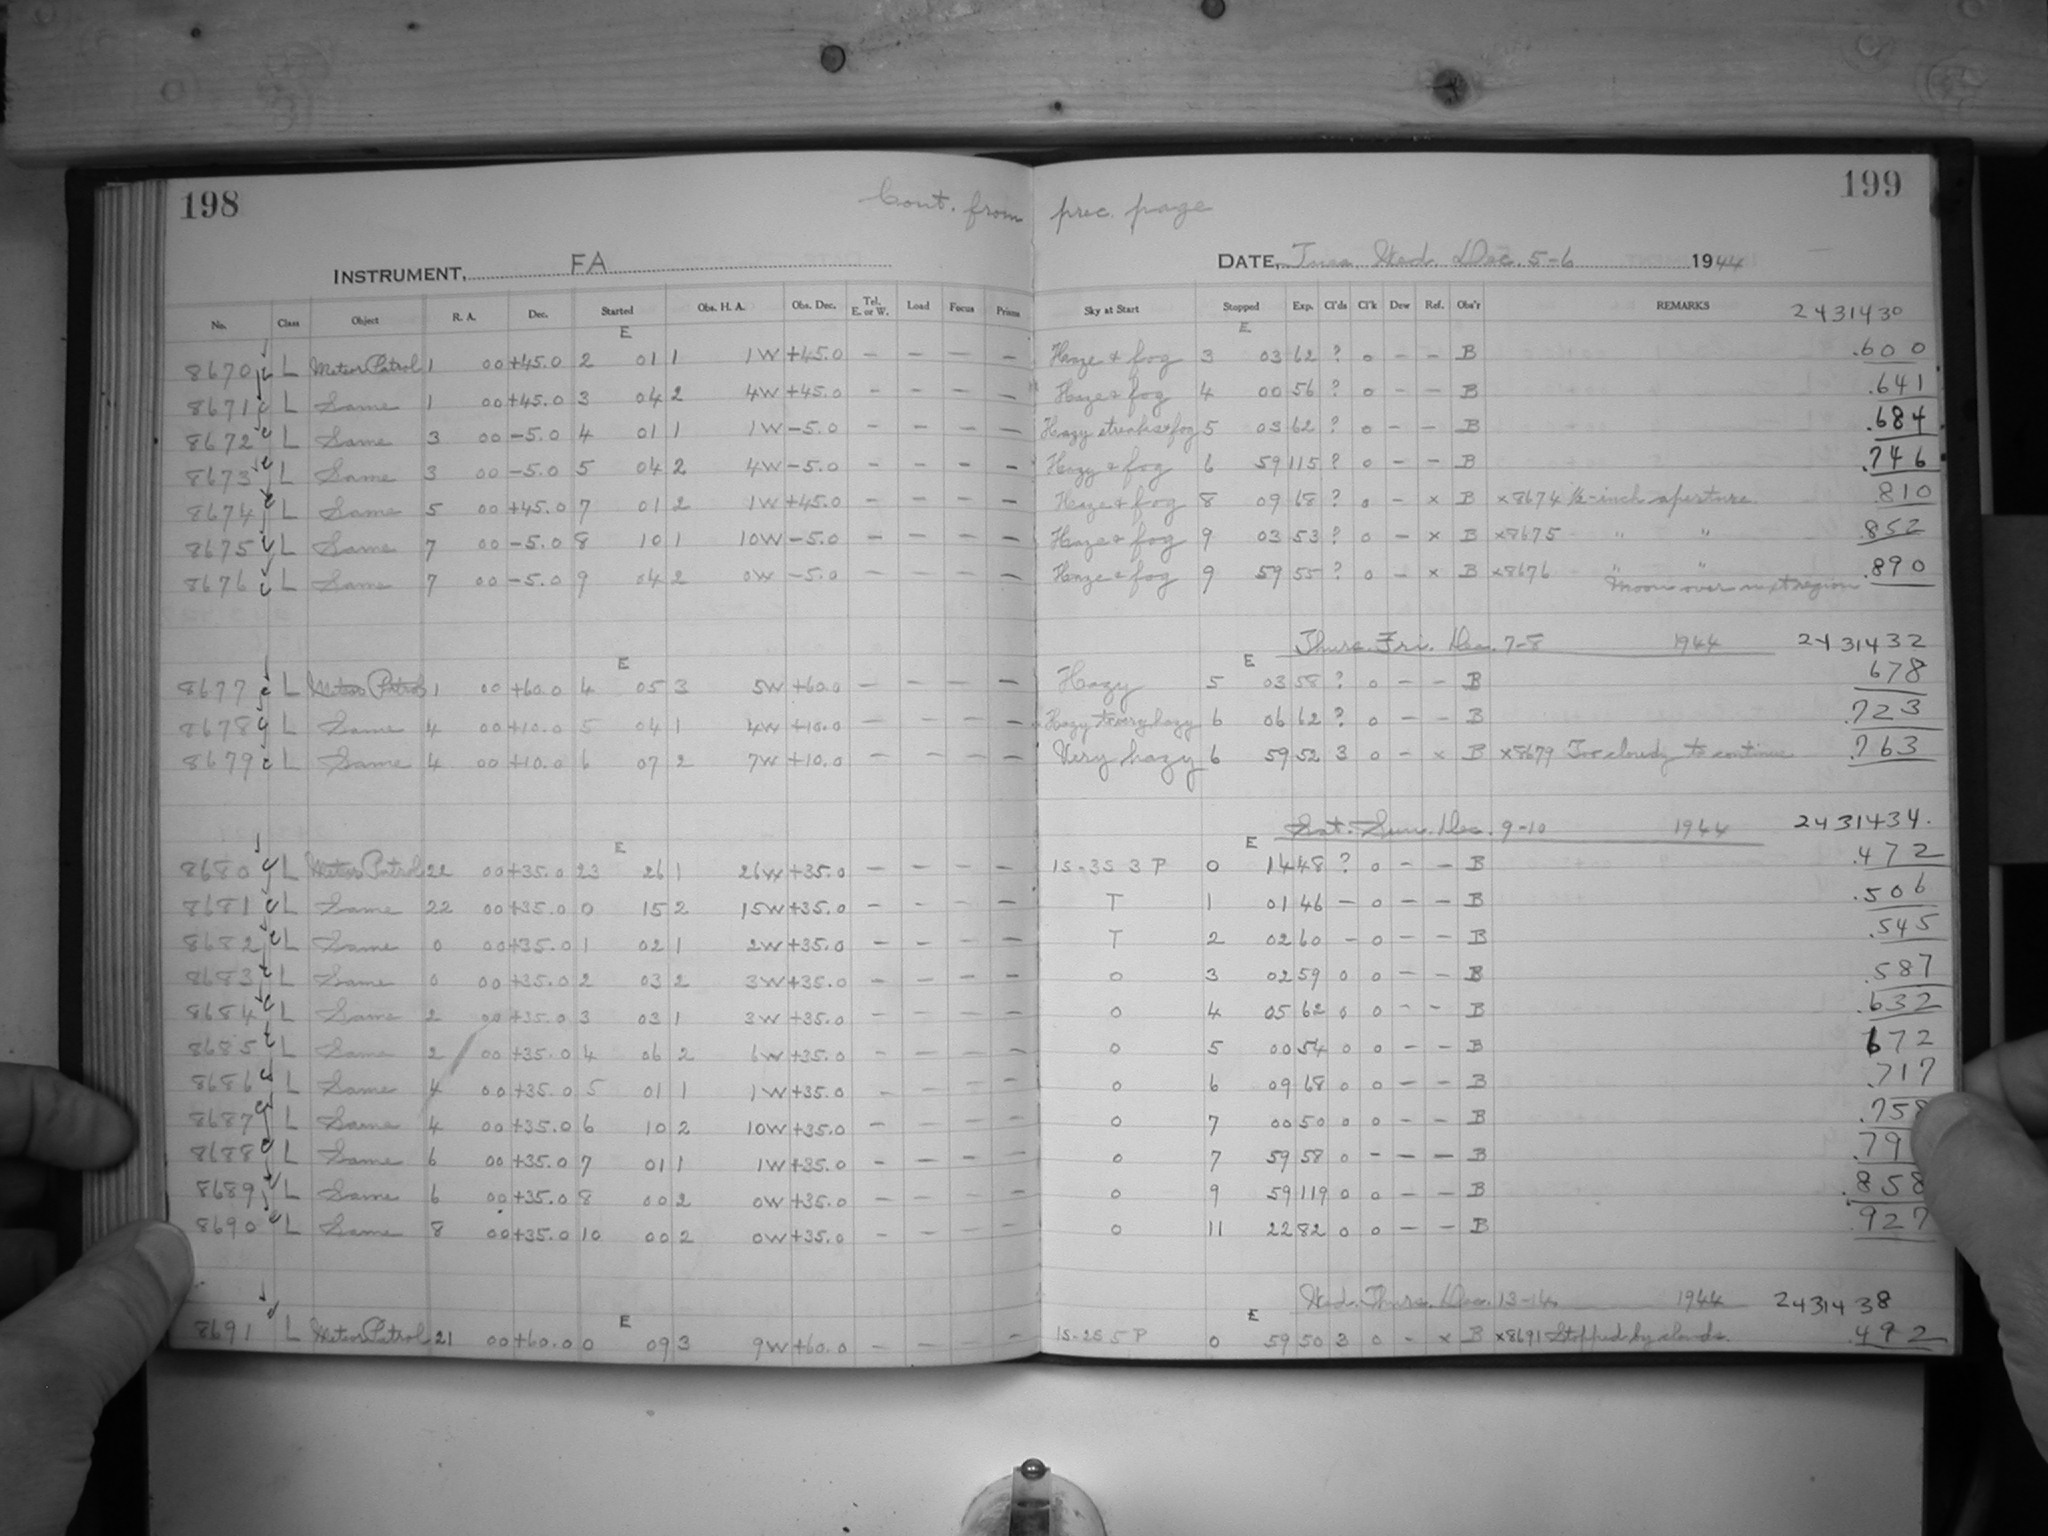 198
Cont. from prec. page
199
INSTRUMENT, FA
DATE, Tues. Wed. Dec. 5-6 1944
No. Class Object R. A. Dec. Started Obs. H. A. Obs. Dec. Tel. E. or W. Load Focus Prisms Sky at Start Stopped Exp. Cl'ds Cl'k Dew Ref. Obs'r REMARKS 2431430
E E
8670 L Meteor Patrol 1 00 +45.0 2 01 1 1W +45.0 – – – – Haze & fog 3 03 62 ? 0 – – B .600
8671 L Same 1 00 +45.0 3 04 2 4W +45.0 – – – – Haze & fog 4 00 56 ? 0 – – B .641
8672 L Same 3 00 -5.0 4 01 1 1W -5.0 – – – – Hazy streaks & fog 5 03 62 ? 0 – – B .684
8673 L Same 3 00 -5.0 5 04 2 4W -5.0 – – – – Hazy & fog 6 59 115 ? 0 – – B .746
8674 L Same 5 00 +45.0 7 01 2 1W +45.0 – – – – Haze & fog 8 09 68 ? 0 – x B x8674 ½-inch aperture .810
8675 L Same 7 00 -5.0 8 10 1 10W -5.0 – – – – Haze & fog 9 03 53 ? 0 – x B x8675 " " .852
8676 L Same 7 00 -5.0 9 04 2 0W -5.0 – – – – Haze & fog 9 59 55 ? 0 – x B x8676 " " .890
Moon over next region
Thurs. Fri. Dec. 7-8 1944 2431432
E E
8677 L Meteor Patrol 1 00 +60.0 4 05 3 5W +60.0 – – – – Hazy 5 03 58 ? 0 – – B 678
8678 L Same 4 00 +10.0 5 04 1 4W +10.0 – – – – Hazy to very hazy 6 06 62 ? 0 – – B .723
8679 L Same 4 00 +10.0 6 07 2 7W +10.0 – – – – Very hazy 6 59 52 3 0 – x B x8679 Too cloudy to continue .763
Sat. Sun. Dec. 9-10 1944 2431434.
E E
8680 L Meteor Patrol 22 00 +35.0 23 26 1 26W +35.0 – – – – 1S-3S 3 P 0 14 48 ? 0 – – B .472
8681 L Same 22 00 +35.0 0 15 2 15W +35.0 – – – – T 1 01 46 – 0 – – B .506
8682 L Same 0 00 +35.0 1 02 1 2W +35.0 – – – – T 2 02 60 – 0 – – B .545
8683 L Same 0 00 +35.0 2 03 2 3W +35.0 – – – – 0 3 02 59 0 0 – – B .587
8684 L Same 2 00 +35.0 3 03 1 3W +35.0 – – – – 0 4 05 62 0 0 – – B .632
8685 L Same 2 00 +35.0 4 06 2 6W +35.0 – – – – 0 5 00 54 0 0 – – B 672
8686 L Same 4 00 +35.0 5 01 1 1W +35.0 – – – – 0 6 09 68 0 0 – – B .717
8687 L Same 4 00 +35.0 6 10 2 10W +35.0 – – – – 0 7 00 50 0 0 – – B .758
8688 L Same 6 00 +35.0 7 01 1 1W +35.0 – – – – 0 7 59 58 0 – – – B .79
8689 L Same 6 00 +35.0 8 00 2 0W +35.0 – – – – 0 9 59 119 0 0 – – B .858
8690 L Same 8 00 +35.0 10 00 2 0W +35.0 – – – – 0 11 22 82 0 0 – – B .927
Wed. Thurs. Dec. 13-14 1944 2431438
E E
8691 L Meteor Patrol 21 00 +60.0 0 09 3 9W +60.0 – – – – 1S-2S 5 P 0 59 50 3 0 – x B x8691 Stopped by clouds. .492